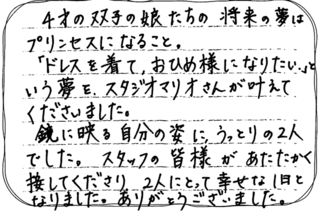 4才の双子の娘たちの将来の夢は
プリンセスになること。
「ドレスを着て、おひめ様になりたい。」と
いう夢を、スタジオマリオさんが叶えて
くださいました。
鏡に映る自分の姿に、うっとりの2人
でした。スタッフの皆様があたたかく
接してくださり、2人にとって幸せな1日と
なりました。ありがとうございました。